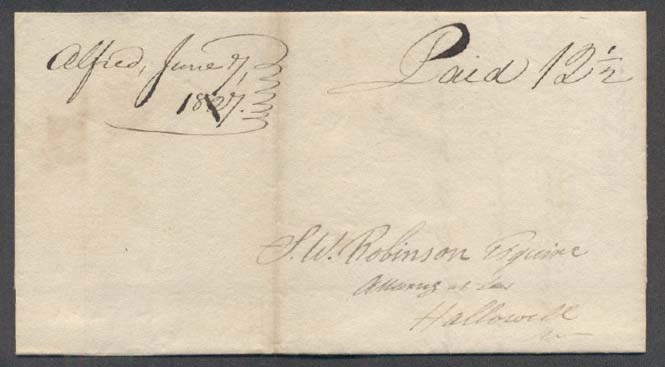 Alfred, June 7,
1827.
Paid 12 1/2
S. W. Robinson Esquire
Attorney at Law
Hallowell